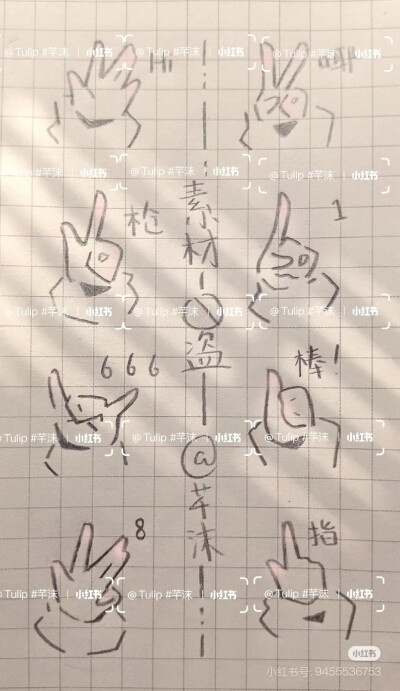 @ Tulip #芊沫 | 小红书
@ Tulip #芊沫 | 小红书
@ Tulip #芊沫 | 小红书
Hi
@ Tulip #芊沫 | 小红书
@ Tulip #芊沫 | 小红书
@ Tulip #芊沫 | 小红书
素
枪
1
材
@ Tulip #芊沫 | 小红书
@ Tulip #芊沫 | 小红书
@ Tulip #芊沫 | 小红书
盗
666
棒!
@ Tulip #芊沫 | 小红书
@ Tulip #芊沫 | 小红书
@ Tulip #芊沫 | 小红书
@
芊
沫
8
指
@ Tulip #芊沫 | 小红书
@ Tulip #芊沫 | 小红书
@ Tulip #芊沫 | 小红书
小红书
小红书号: 9455536753